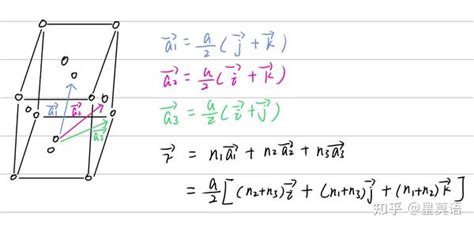 a⃗1 = a/2 (j⃗ + k⃗)
a⃗2 = a/2 (i⃗ + k⃗)
a⃗3 = a/2 (i⃗ + j⃗)
r⃗ = n1a⃗1 + n2a⃗2 + n3a⃗3
= a/2 [(n2+n3)i⃗ + (n1+n3)j⃗ + (n1+n2)k⃗]
a⃗1 a⃗2
a⃗3
知乎 @星莫语